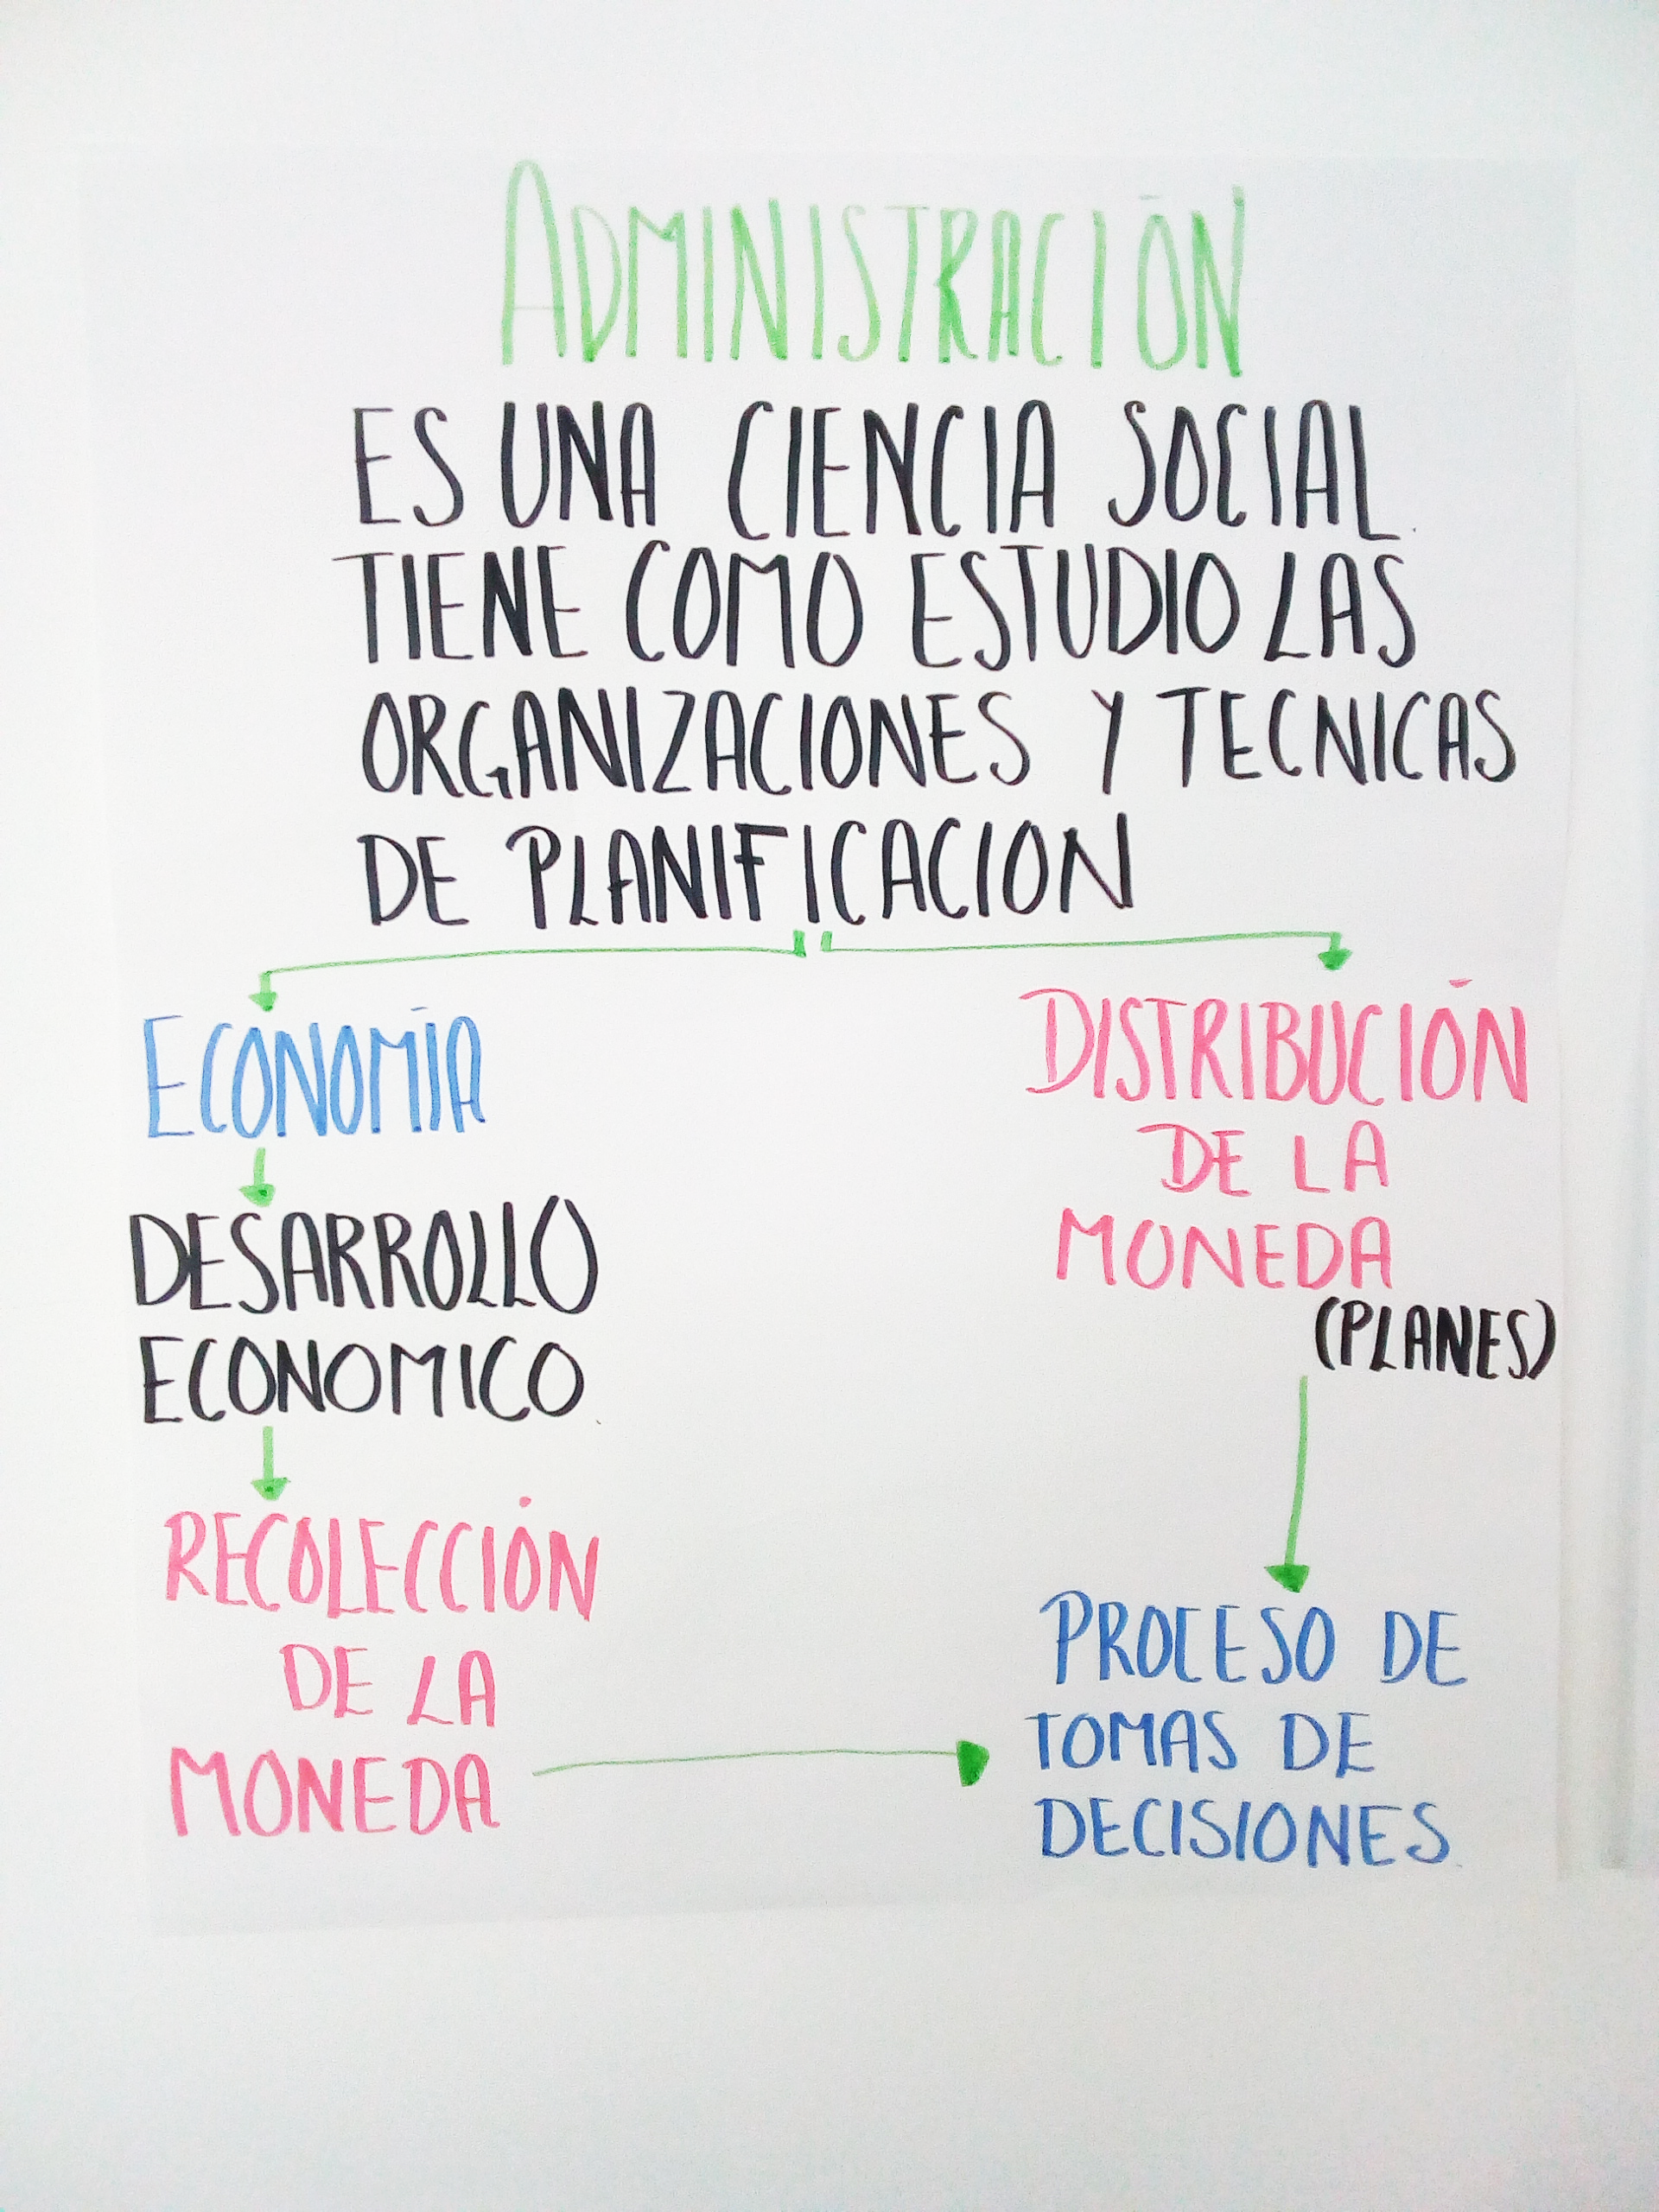 ADMINISTRACIÓN
ES UNA CIENCIA SOCIAL
TIENE COMO ESTUDIO LAS
ORGANIZACIONES Y TECNICAS
DE PLANIFICACION
ECONOMÍA
DESARROLLO
ECONOMICO
RECOLECCIÓN
DE LA
MONEDA
DISTRIBUCIÓN
DE LA
MONEDA
(PLANES)
PROCESO DE
TOMAS DE
DECISIONES